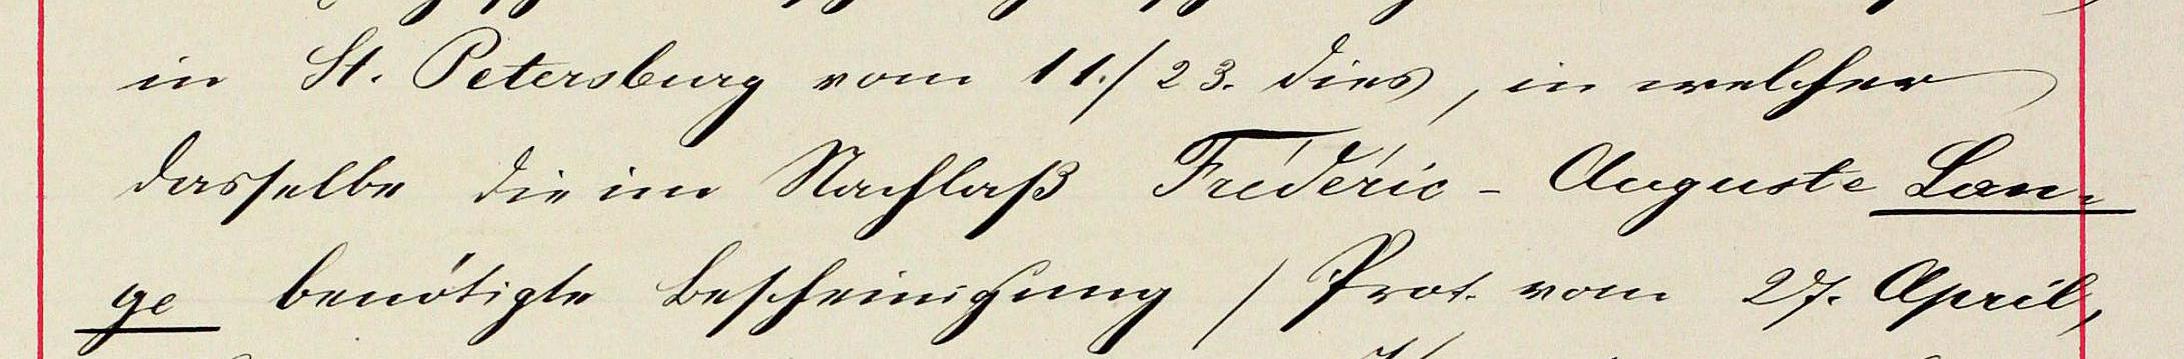 in St. Petersburg vom 11./23. dies, in welcher
dasselbe die im Nachlaß Fréderic-Auguste Lan-
ge benötigte Bescheinigung / Prot. vom 27. April,